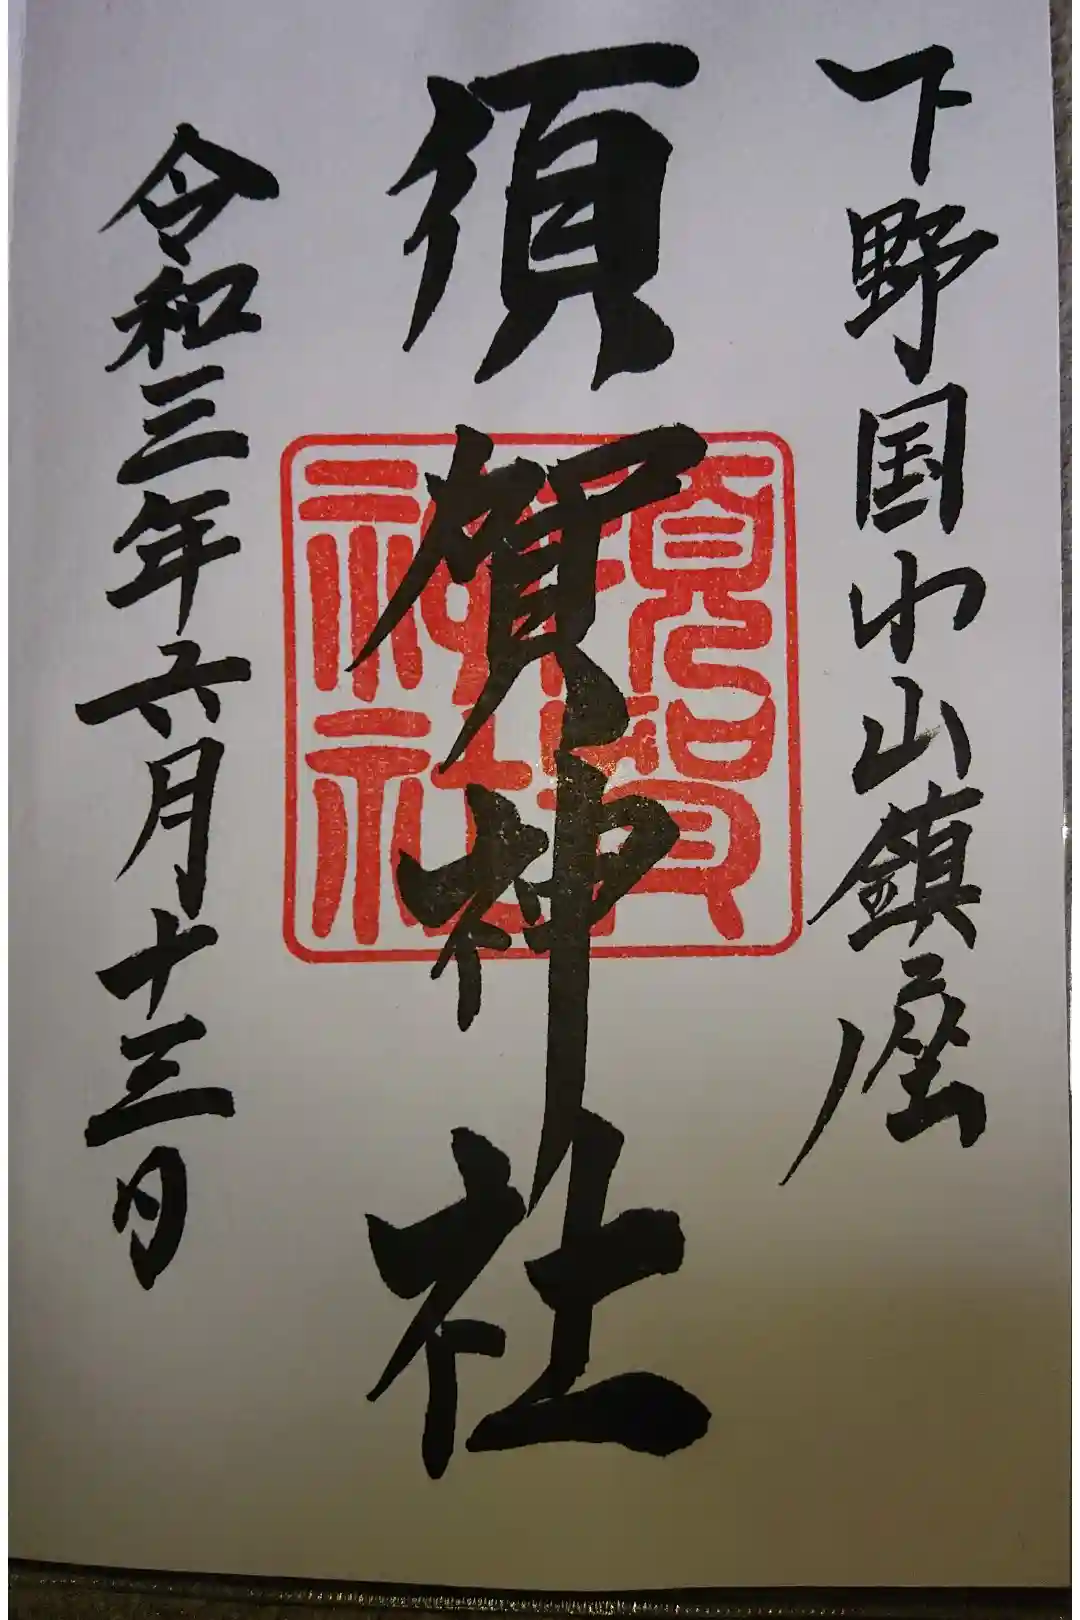 下野国小山鎮座
須賀神社
須賀神社
令和三年六月十三日